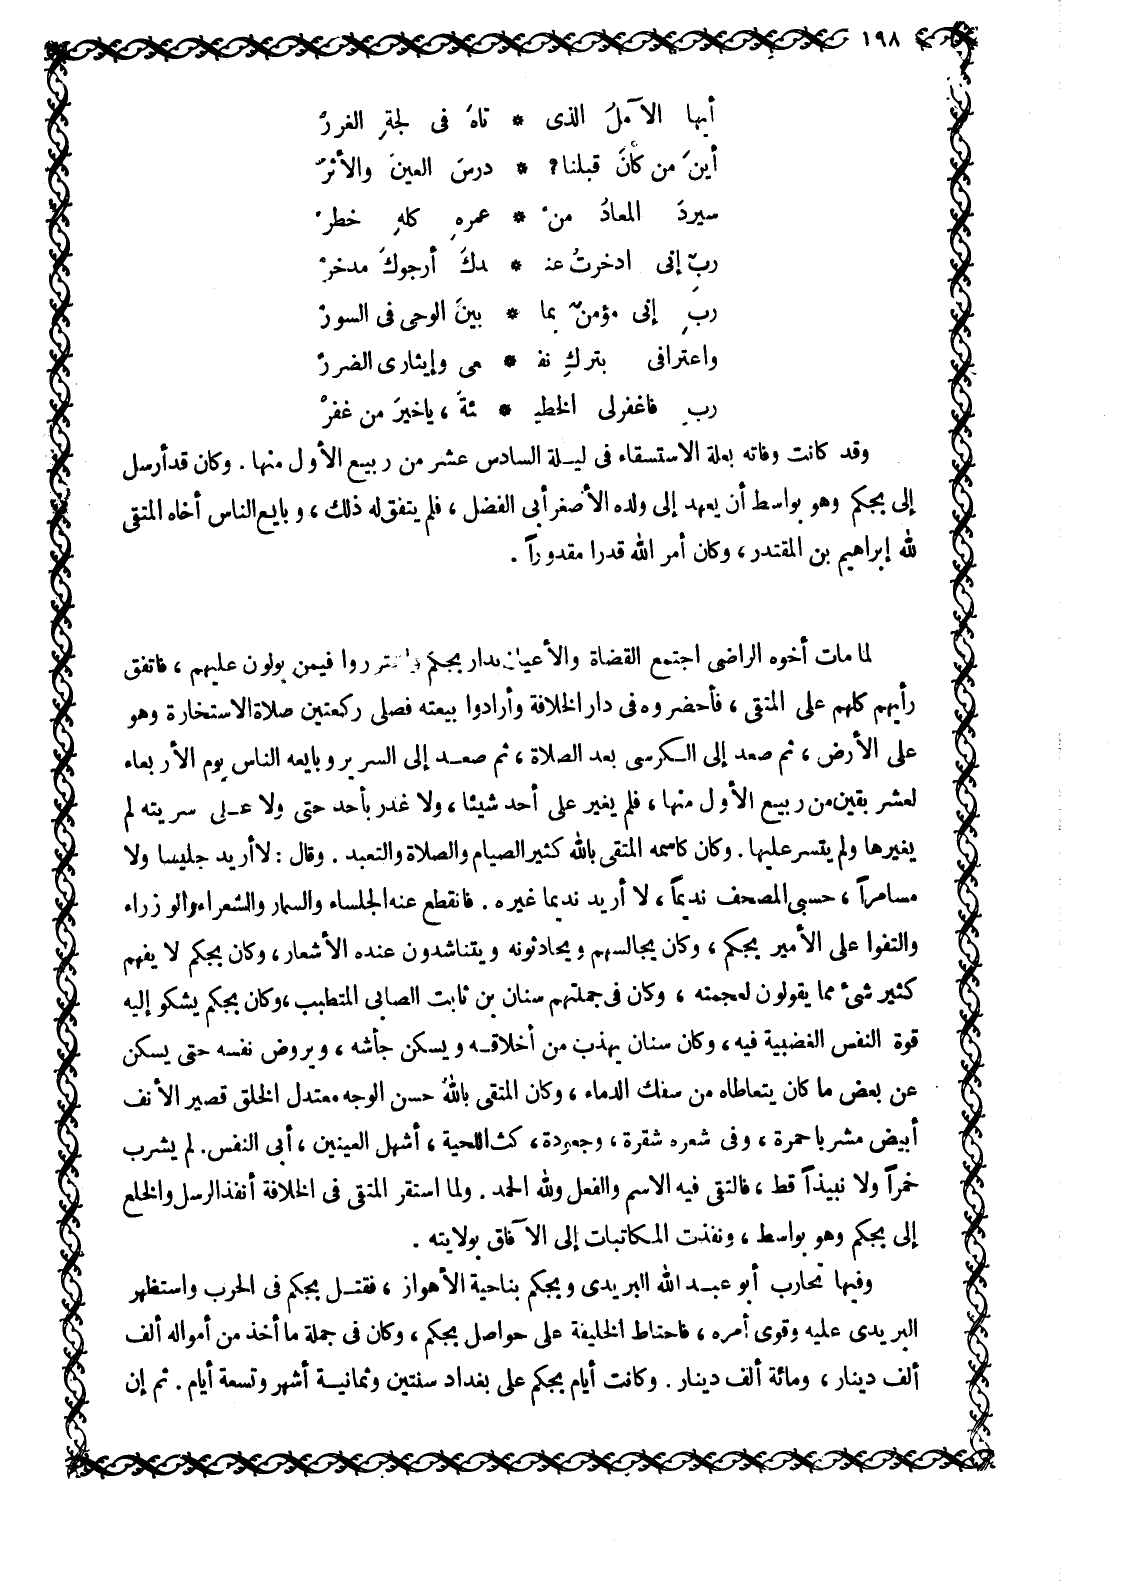 ١٩٨
أيها الآملُ الذى * تاهَ فى لجةِ الغررْ
أينَ من كانَ قبلنا؟ * درسَ العينَ والأثرْ
سيردَ المعادُ منْ * عمرهِ كلهِ خطرْ
ربِّ إنى ادخرتُ عنـ * ـدكَ أرجوكَ مدخرْ
ربِّ إنى مؤمنٌ بما * بينَ الوحى فى السورْ
واعترافى بتركِ نفـ * ـعى وإيثارى الضررْ
ربِ فاغفرلى الخطيـ * ـئةَ ، ياخيرَ من غفرْ
وقد كانت وفاته بعلة الاستسقاء فى ليلة السادس عشر من ربيع الأول منها . وكان قد أرسل
إلى بجكم وهو بواسط أن يعهد إلى ولده الأصغر أبى الفضل ، فلم يتفق له ذلك ، وبايع الناس أخاه المتقى
لله إبراهيم بن المقتدر ، وكان أمر الله قدرا مقدوراً .
لما مات أخوه الراضى اجتمع القضاة والأعيان بدار بجكم واشتوروا فيمن يولون عليهم ، فاتفق
رأيهم كلهم على المتقى ، فأحضروه فى دار الخلافة وأرادوا بيعته فصلى ركعتين صلاة الاستخارة وهو
على الأرض ، ثم صعد إلى الكرسى بعد الصلاة ، ثم صعد إلى السرير وبايعه الناس يوم الأربعاء
لعشر بقين من ربيع الأول منها ، فلم يغير على أحد شيئا ، ولا غدر بأحد حتى ولا على سريته لم
يغيرها ولم يتسر عليها . وكان كاسمه المتقى بالله كثير الصيام والصلاة والتعبد . وقال : لا أريد جليسا ولا
مسامراً ، حسبى المصحف نديماً ، لا أريد نديما غيره . فانقطع عنه الجلساء والسمار والشعراء والوزراء
والتفوا على الأمير بجكم ، وكان يجالسهم ويحادثونه ويتناشدون عنده الأشعار ، وكان بجكم لا يفهم
كثير شىء مما يقولون لعجمته ، وكان فى جملتهم سنان بن ثابت الصابى المتطبب ، وكان بجكم يشكو إليه
قوة النفس الغضبية فيه ، وكان سنان يهذب من أخلاقه ويسكن جأشه ، ويروض نفسه حتى يسكن
عن بعض ما كان يتعاطاه من سفك الدماء ، وكان المتقى بالله حسن الوجه معتدل الخلق قصير الأنف
أبيض مشربا حمرة ، وفى شعره شقرة ، وجعودة ، كث اللحية ، أشهل العينين ، أبى النفس . لم يشرب
خمراً ولا نبيذاً قط ، فالتقى فيه الاسم والفعل ولله الحمد . ولما استقر المتقى فى الخلافة أنفذ الرسل والخلع
إلى بجكم وهو بواسط ، ونفذت المكاتبات إلى الآفاق بولايته .
وفيها تحارب أبو عبد الله البريدى وبجكم بناحية الأهواز ، فقتل بجكم فى الحرب واستظهر
البريدى عليه وقوى أمره ، فاحتاط الخليفة على حواصل بجكم ، وكان فى جملة ما أخذ من أمواله ألف
ألف دينار ، ومائة ألف دينار . وكانت أيام بجكم على بغداد سنتين وثمانية أشهر وتسعة أيام . ثم إن